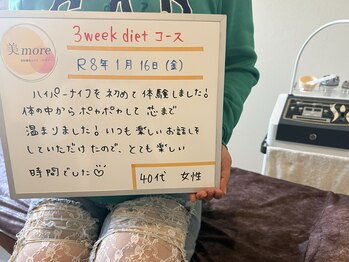 美more
3week diet コース
R8年 1月 16日 (金)
ハイパーナイフを初めて体験しました!
体の中からポカポカして芯まで
温まりました! いつも楽しいお話しを
していただけたので、とても楽しい
時間でした♡
40代 女性